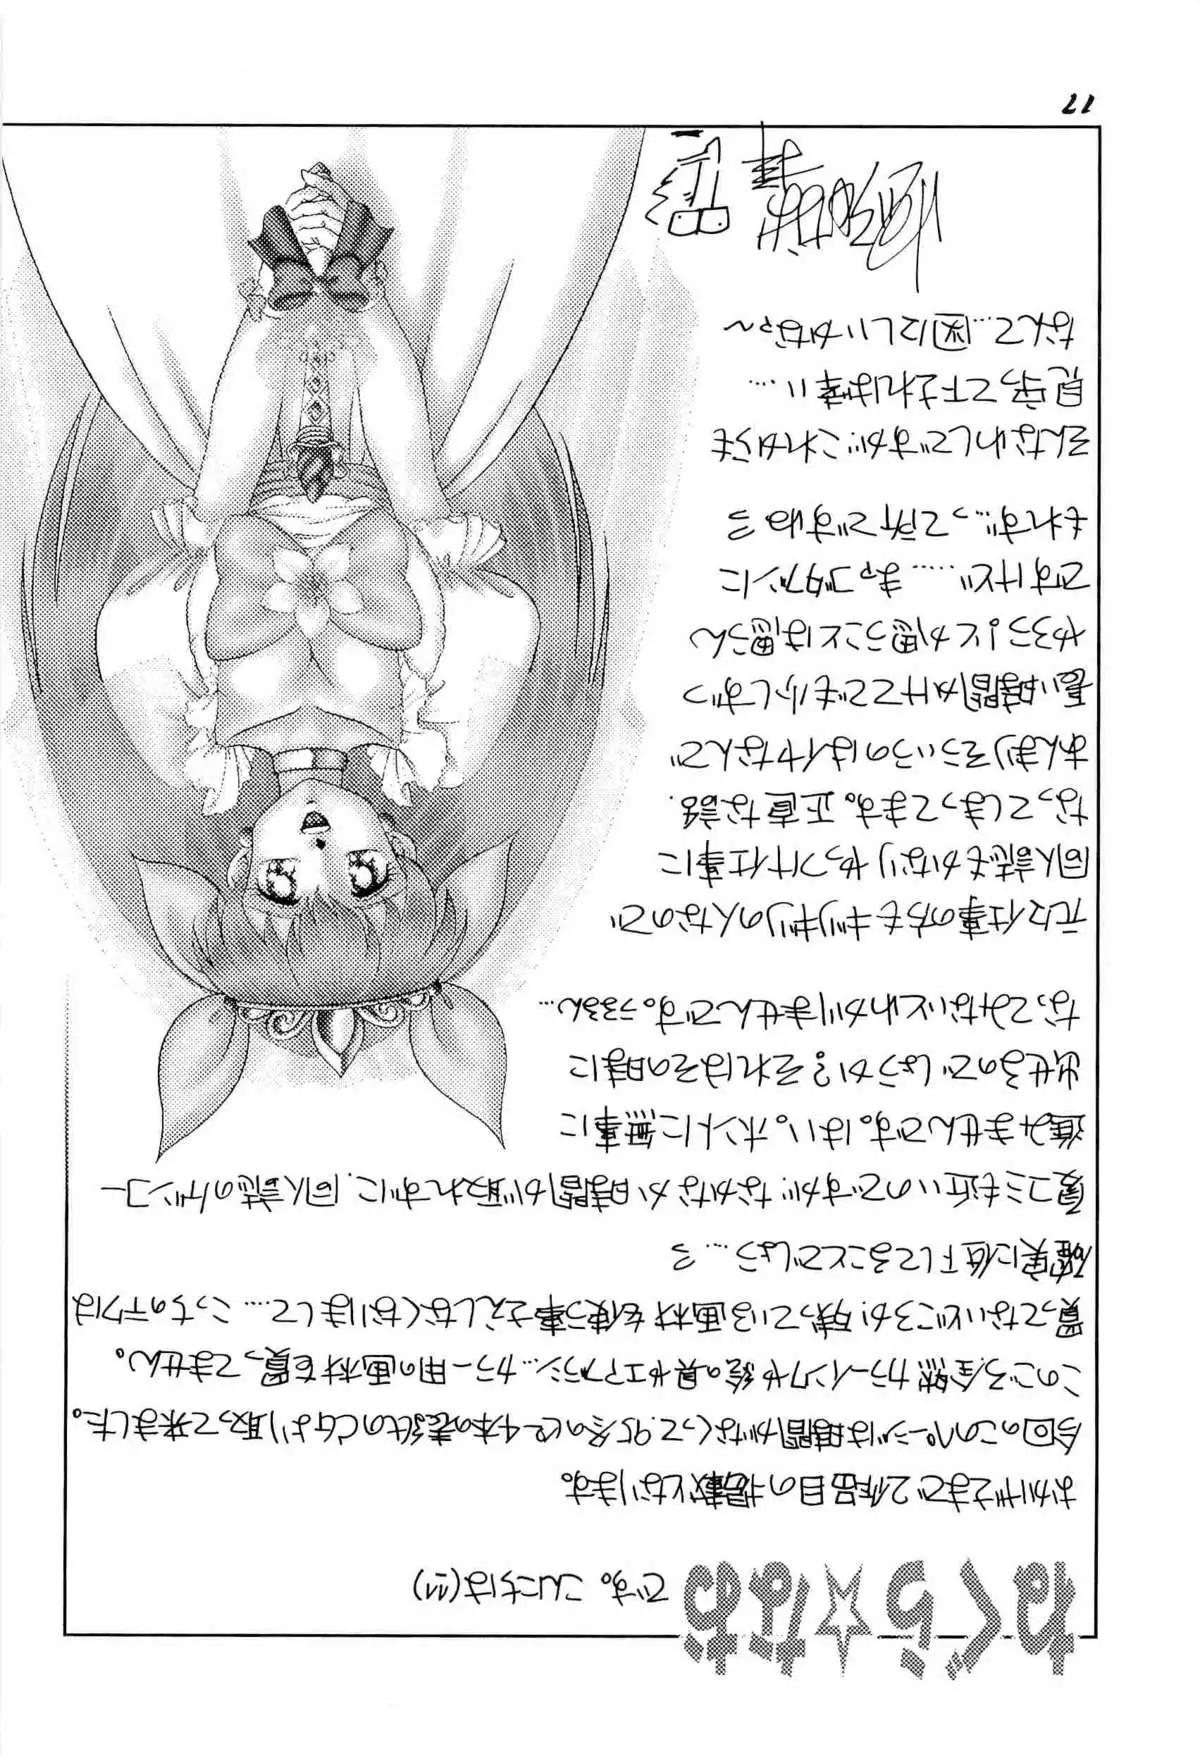 わくら☆なお です。こんにちは(汗)
おかげさまで2作品目の掲載となります。
今回のこのページは時間がなくって95冬のピー4本の表紙のCGより取って来ました。
このごろ全然カラーインクや絵の具やエアブラシ…カラー用の画材を買ってません。
買ってないどころか残っている画材を使う事さえしなくなりまして……こっちのテクは
確実に低下してることでしょう…ろ
夏コミも近いのですが、なかなか時間が取れずに、同人誌のゲンコー
進みませんです。はい。ホントに無事に
出せるのでしょうか?それはその時に
なってみないとわかりませんです。うるるん…
元々仕事の方もギリギリの人なので
同人誌もかなりやっつけ仕事に
なってしまってます。正直な話.
あんまりそういうのはイヤなんで
長い時間かけてでも少しずつ
やろう!とか思うことは思うん
ですけど……まァゴタブンに
もれず…って所ですねろ
そんなわしですが、これからも
見守って下されば幸い…
なんて…図にしいかなァ〜
17